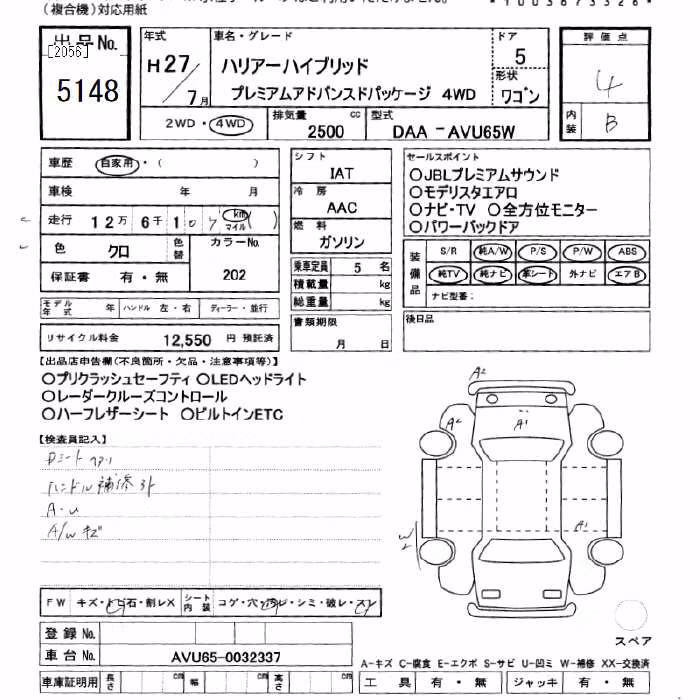 (複合機)対応用紙
出品No.
[2056]
5148
年式
H27/7月
車名・グレード
ハリアーハイブリッド
プレミアムアドバンスドパッケージ 4WD
ドア
5
形状
ワゴン
評価点
4
内装
B
2WD・4WD
排気量
2500 cc
型式
DAA -AVU65W
車歴 自家用・( )
車検 年 月
走行 12万 6千 1 km マイル ( )
色 クロ 色替
カラーNo. 202
保証書 有・無
モデル年式 ハンドル 左・右 ディーラー・並行
リサイクル料金 12,550 円 預託済
シフト
IAT
冷房
AAC
燃料
ガソリン
乗車定員 5 名
積載量 kg
総重量 kg
書類期限
月 日
セールスポイント
○JBLプレミアムサウンド
○モデリスタエアロ
○ナビ・TV ○全方位モニター
○パワーバックドア
装備品
S/R 純A/W P/S P/W ABS
純TV 純ナビ 革シート 外ナビ エアB
ナビ型番:
後日品
【出品店申告欄(不良箇所・欠品・注意事項等)】
○プリクラッシュセーフティ ○LEDヘッドライト
○レーダークルーズコントロール
○ハーフレザーシート ○ビルトインETC
【検査員記入】
Dシート
ハンドル補修外
A・U
A/Wキズ
A2
A2
A1
A1
W2
FW キズ・トビ石・割レX シート内装 コゲ・穴・汚レ・シミ・破レ・スレ
登録No.
車台No. AVU65-0032337
スペア
A-キズ C-腐食 E-エクボ S-サビ U-凹ミ W-補修 XX-交換済
車庫証明用 長さ cm 幅 cm 高さ cm
工具 有・無 ジャッキ 有・無